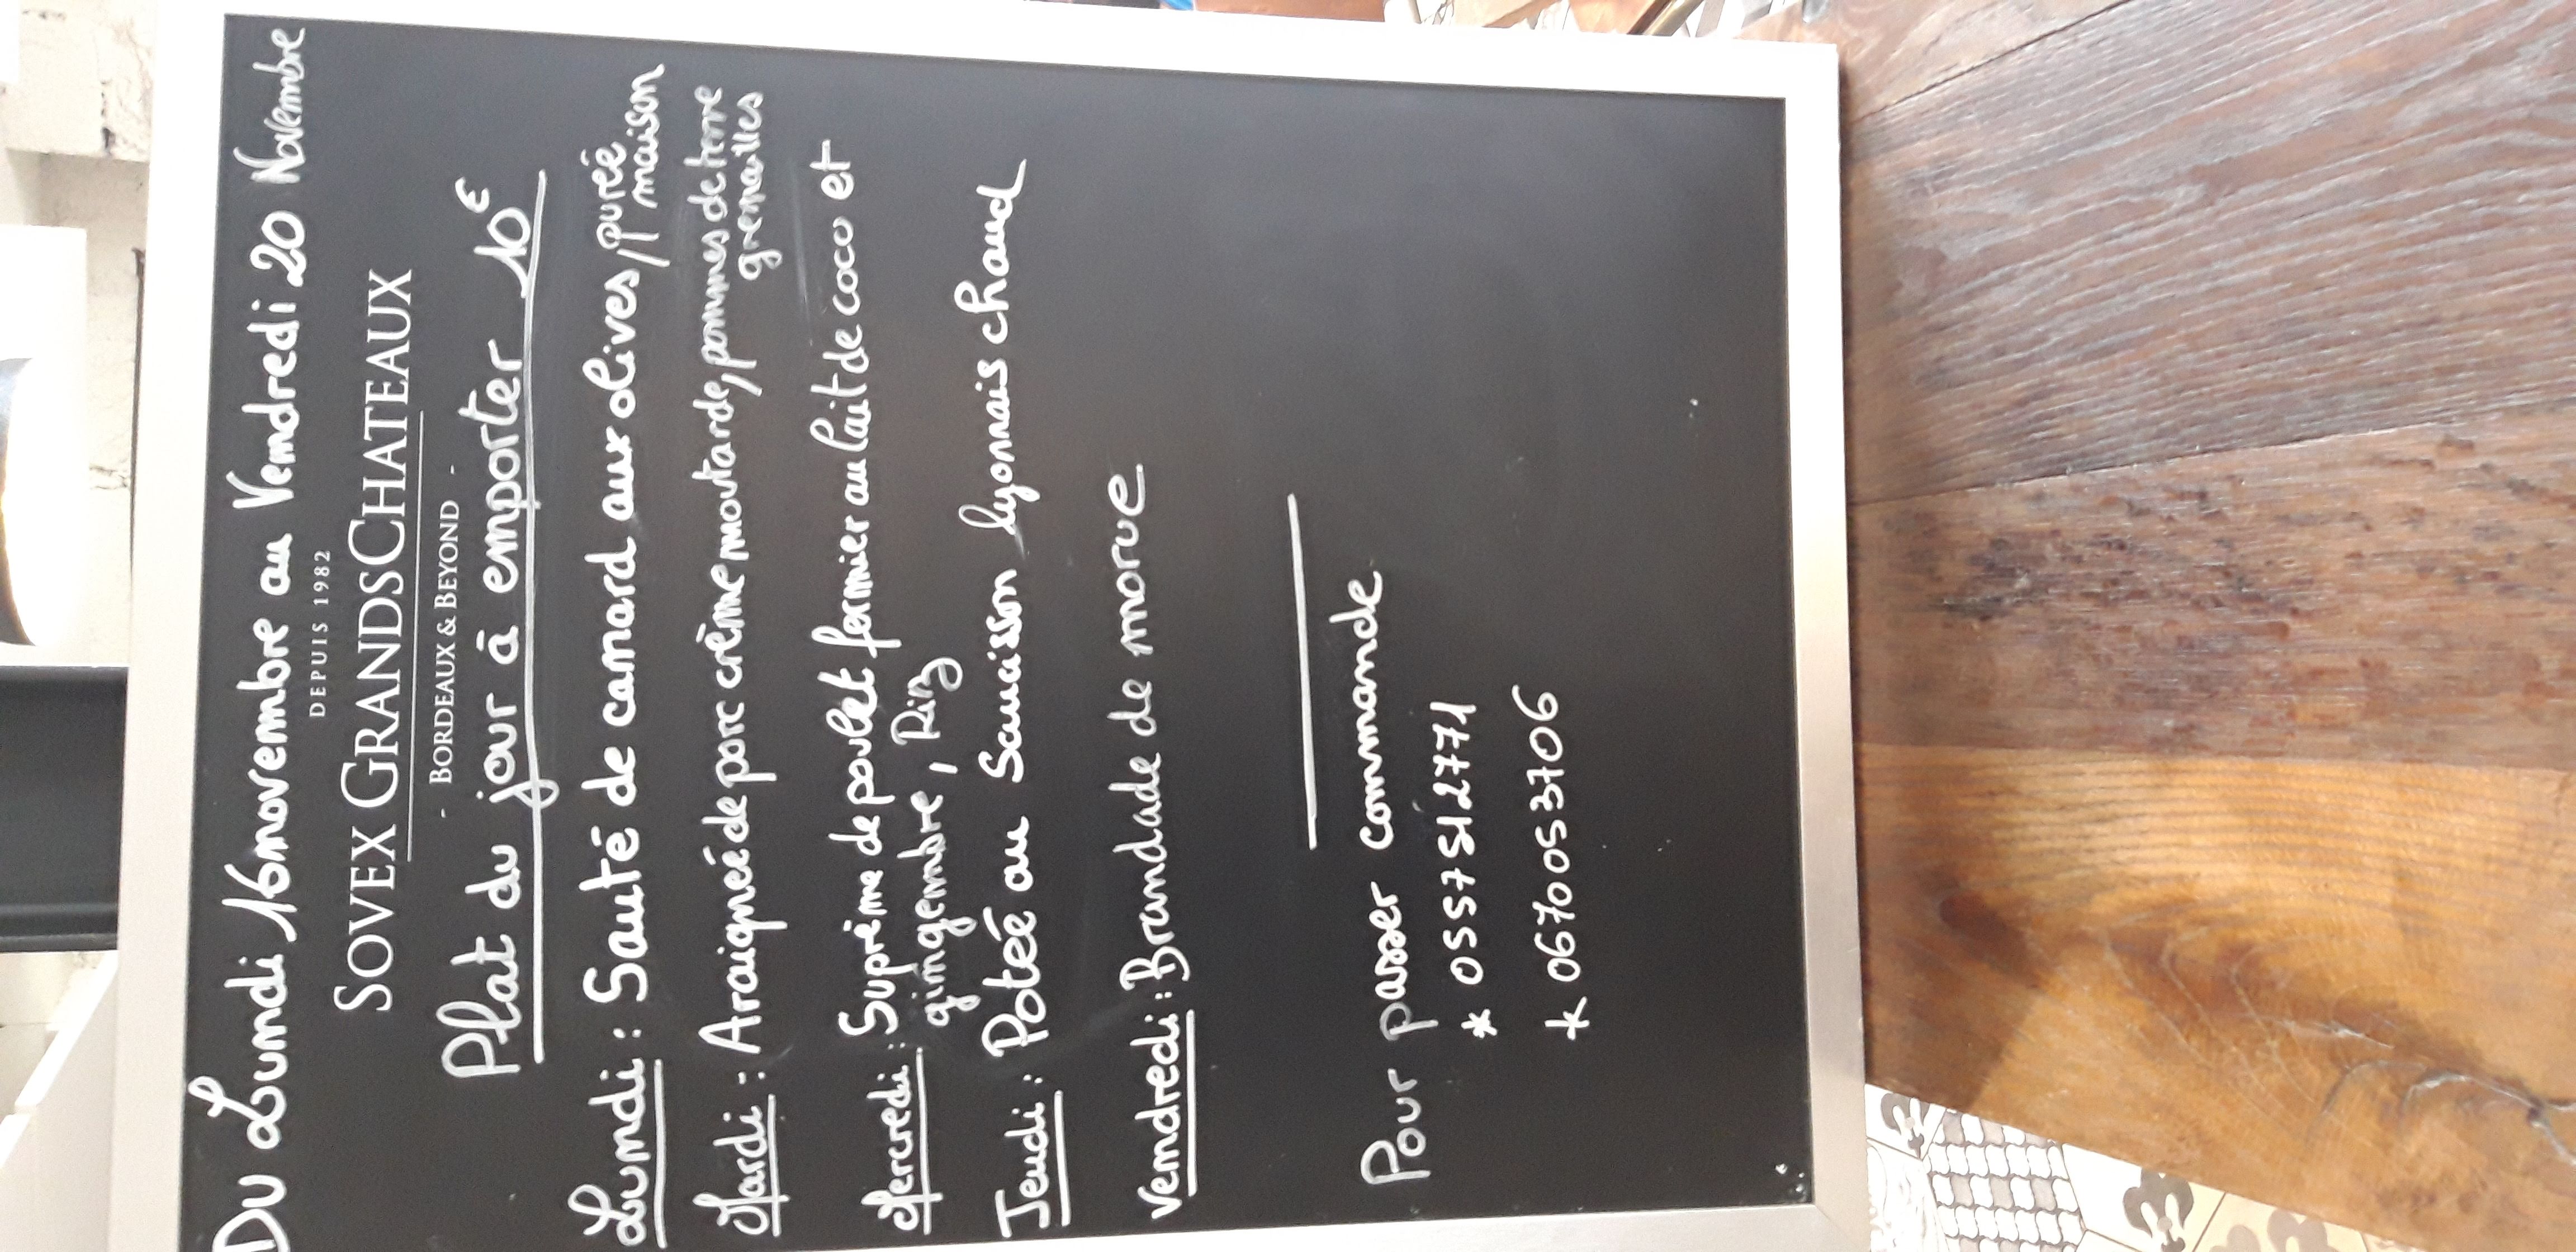 Du Lundi 16 novembre au Vendredi 20 Novembre
DEPUIS 1982
SOVEX GRANDSCHATEAUX
- BORDEAUX & BEYOND -
Plat du jour à emporter 10€
Lundi : Sauté de canard aux olives, purée
maison
Mardi : Araignée de porc crème moutarde, pommes de terre
grenailles
Mercredi : Suprême de poulet fermier au lait de coco et
gingembre, Riz
Jeudi : Poteé au Saucisson lyonnais chaud
Vendredi : Brandade de morue
Pour passer commande
* 0557512771
* 0670053706